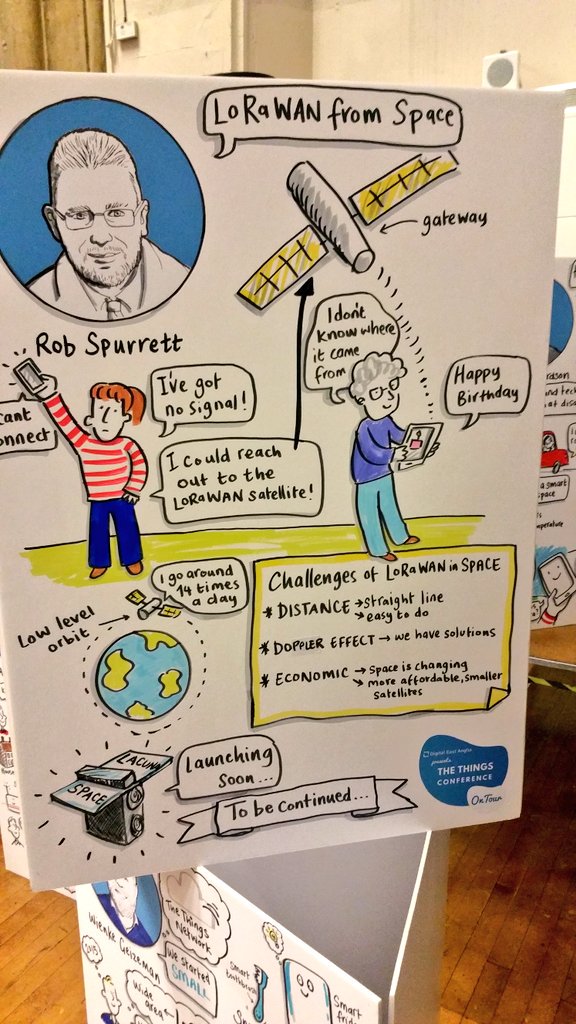 LoRaWAN from Space
gateway
Rob Spurrett
I don't
know where
it came
from
Happy
Birthday
I've got
no signal!
cant
onnect
I could reach
out to the
LoRaWAN satellite!
I go around
14 times
a day
Low level
orbit
Challenges of LoRaWAN in SPACE
* DISTANCE → straight line
→ easy to do
* DOPPLER EFFECT → we have solutions
* ECONOMIC → Space is changing
→ more affordable, smaller
satellites
LACUNA
SPACE
Launching
Soon...
To be continued...
Digital East Anglia
presents
THE THINGS
CONFERENCE
On Tour
Wienke Giezeman
The Things
Network
We started
SMALL
2015
Wide
area
Smart
toothbrush
Smart
a smart
space